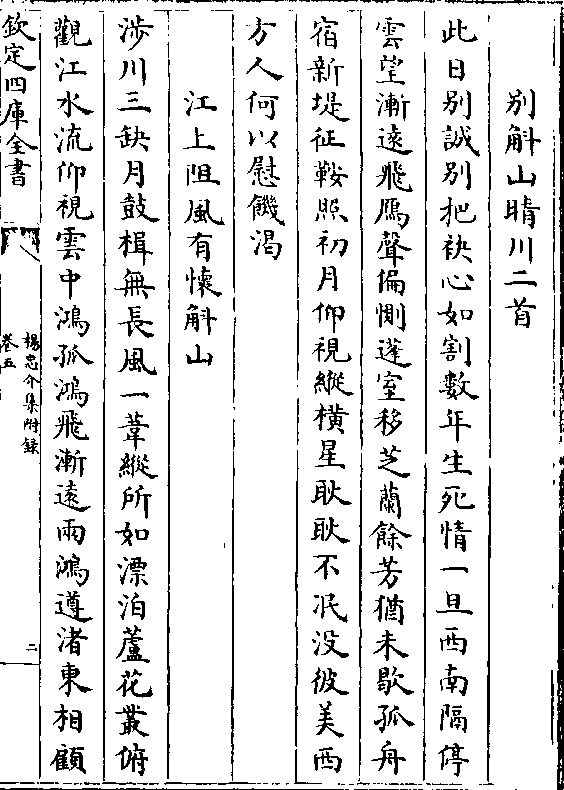 别斛山晴川二首
此日别誠别把袂心如割數年生死情一旦西南隔停
雲望漸遠飛鴈聲偏惻蓬室移芝蘭餘芳猶未歇孤舟
宿新堤征鞍照初月仰視縱橫星耿耿不泯没彼美西
方人何以慰饑渴
江上阻風有懷斛山
渉川三缺月鼓楫無長風一葦縱所如漂泊蘆花叢俯
觀江水流仰視雲中鴻孤鴻飛漸遠兩鴻遵渚東相顧
欽定四庫全書
楊忠介集附録
卷五
二